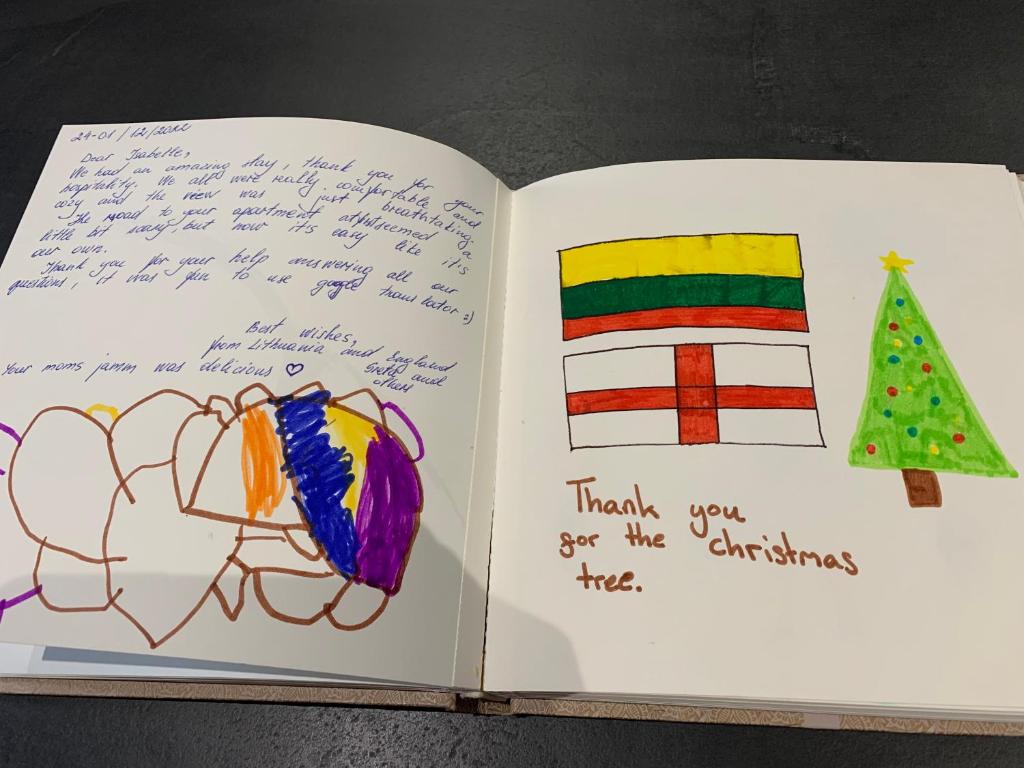 24-01/12/2022
Dear Isabelle,
We had an amazing stay, thank you for your
hospitality. We all were really comfortable and
cozy and the view was just breathtaking.
The road to your apartment seemed a
little bit scary, but now it's easy like it's
our own.
Thank you for your help answering all our
questions, it was fun to use google translator :)
Best wishes,
from Lithuania and England
Greta and
others
Your moms jamm was delicious ♡
Thank you
for the christmas
tree.